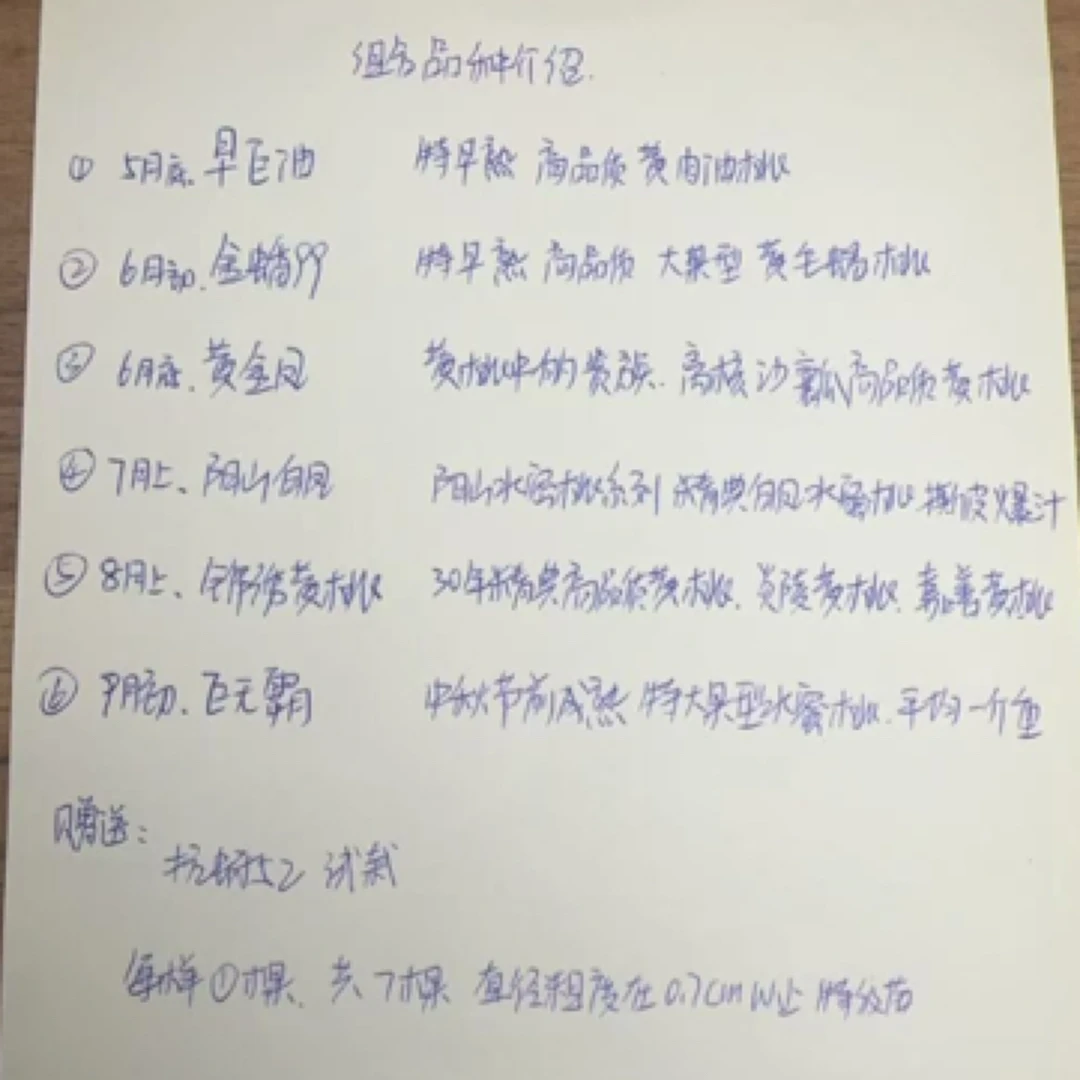 组合品种介绍.
① 5月底.早巨油 特早熟 高品质 黄肉油桃
② 6月初.金蟠99 特早熟 高品质 大果型 黄毛蟠桃
③ 6月底.黄金凤 黄桃中的贵族.离核沙瓤高品质黄桃
④ 7月上、阳山白凤 阳山水蜜桃系列 经典白凤水蜜桃 撕皮爆汁
⑤ 8月上、锦绣黄桃 30年经典高品质黄桃、炎陵黄桃、嘉善黄桃
⑥ 9月初.巨无霸 中秋节前成熟 特大果型水蜜桃.平均一斤重
赠送:
抗 2 试栽
每样①棵、共7棵 直径粗度在0.7cm以上 特级苗